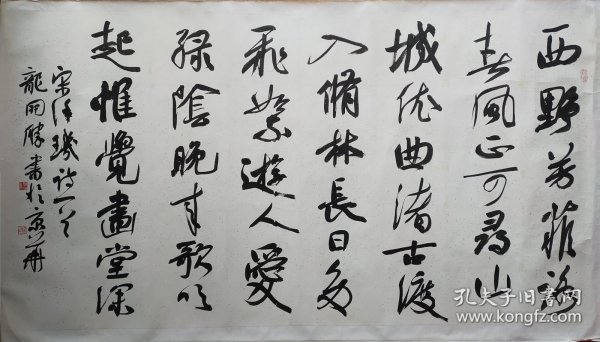 西野芳菲路
春風正可尋山
城依曲渚古渡
入脩林長日多
飛絮遊人愛
緑陰晚来歌吹
起惟覺畫堂深
宋徐璣詩一首
龍開勝書於京華
孔夫子旧书网
www.kongfz.com